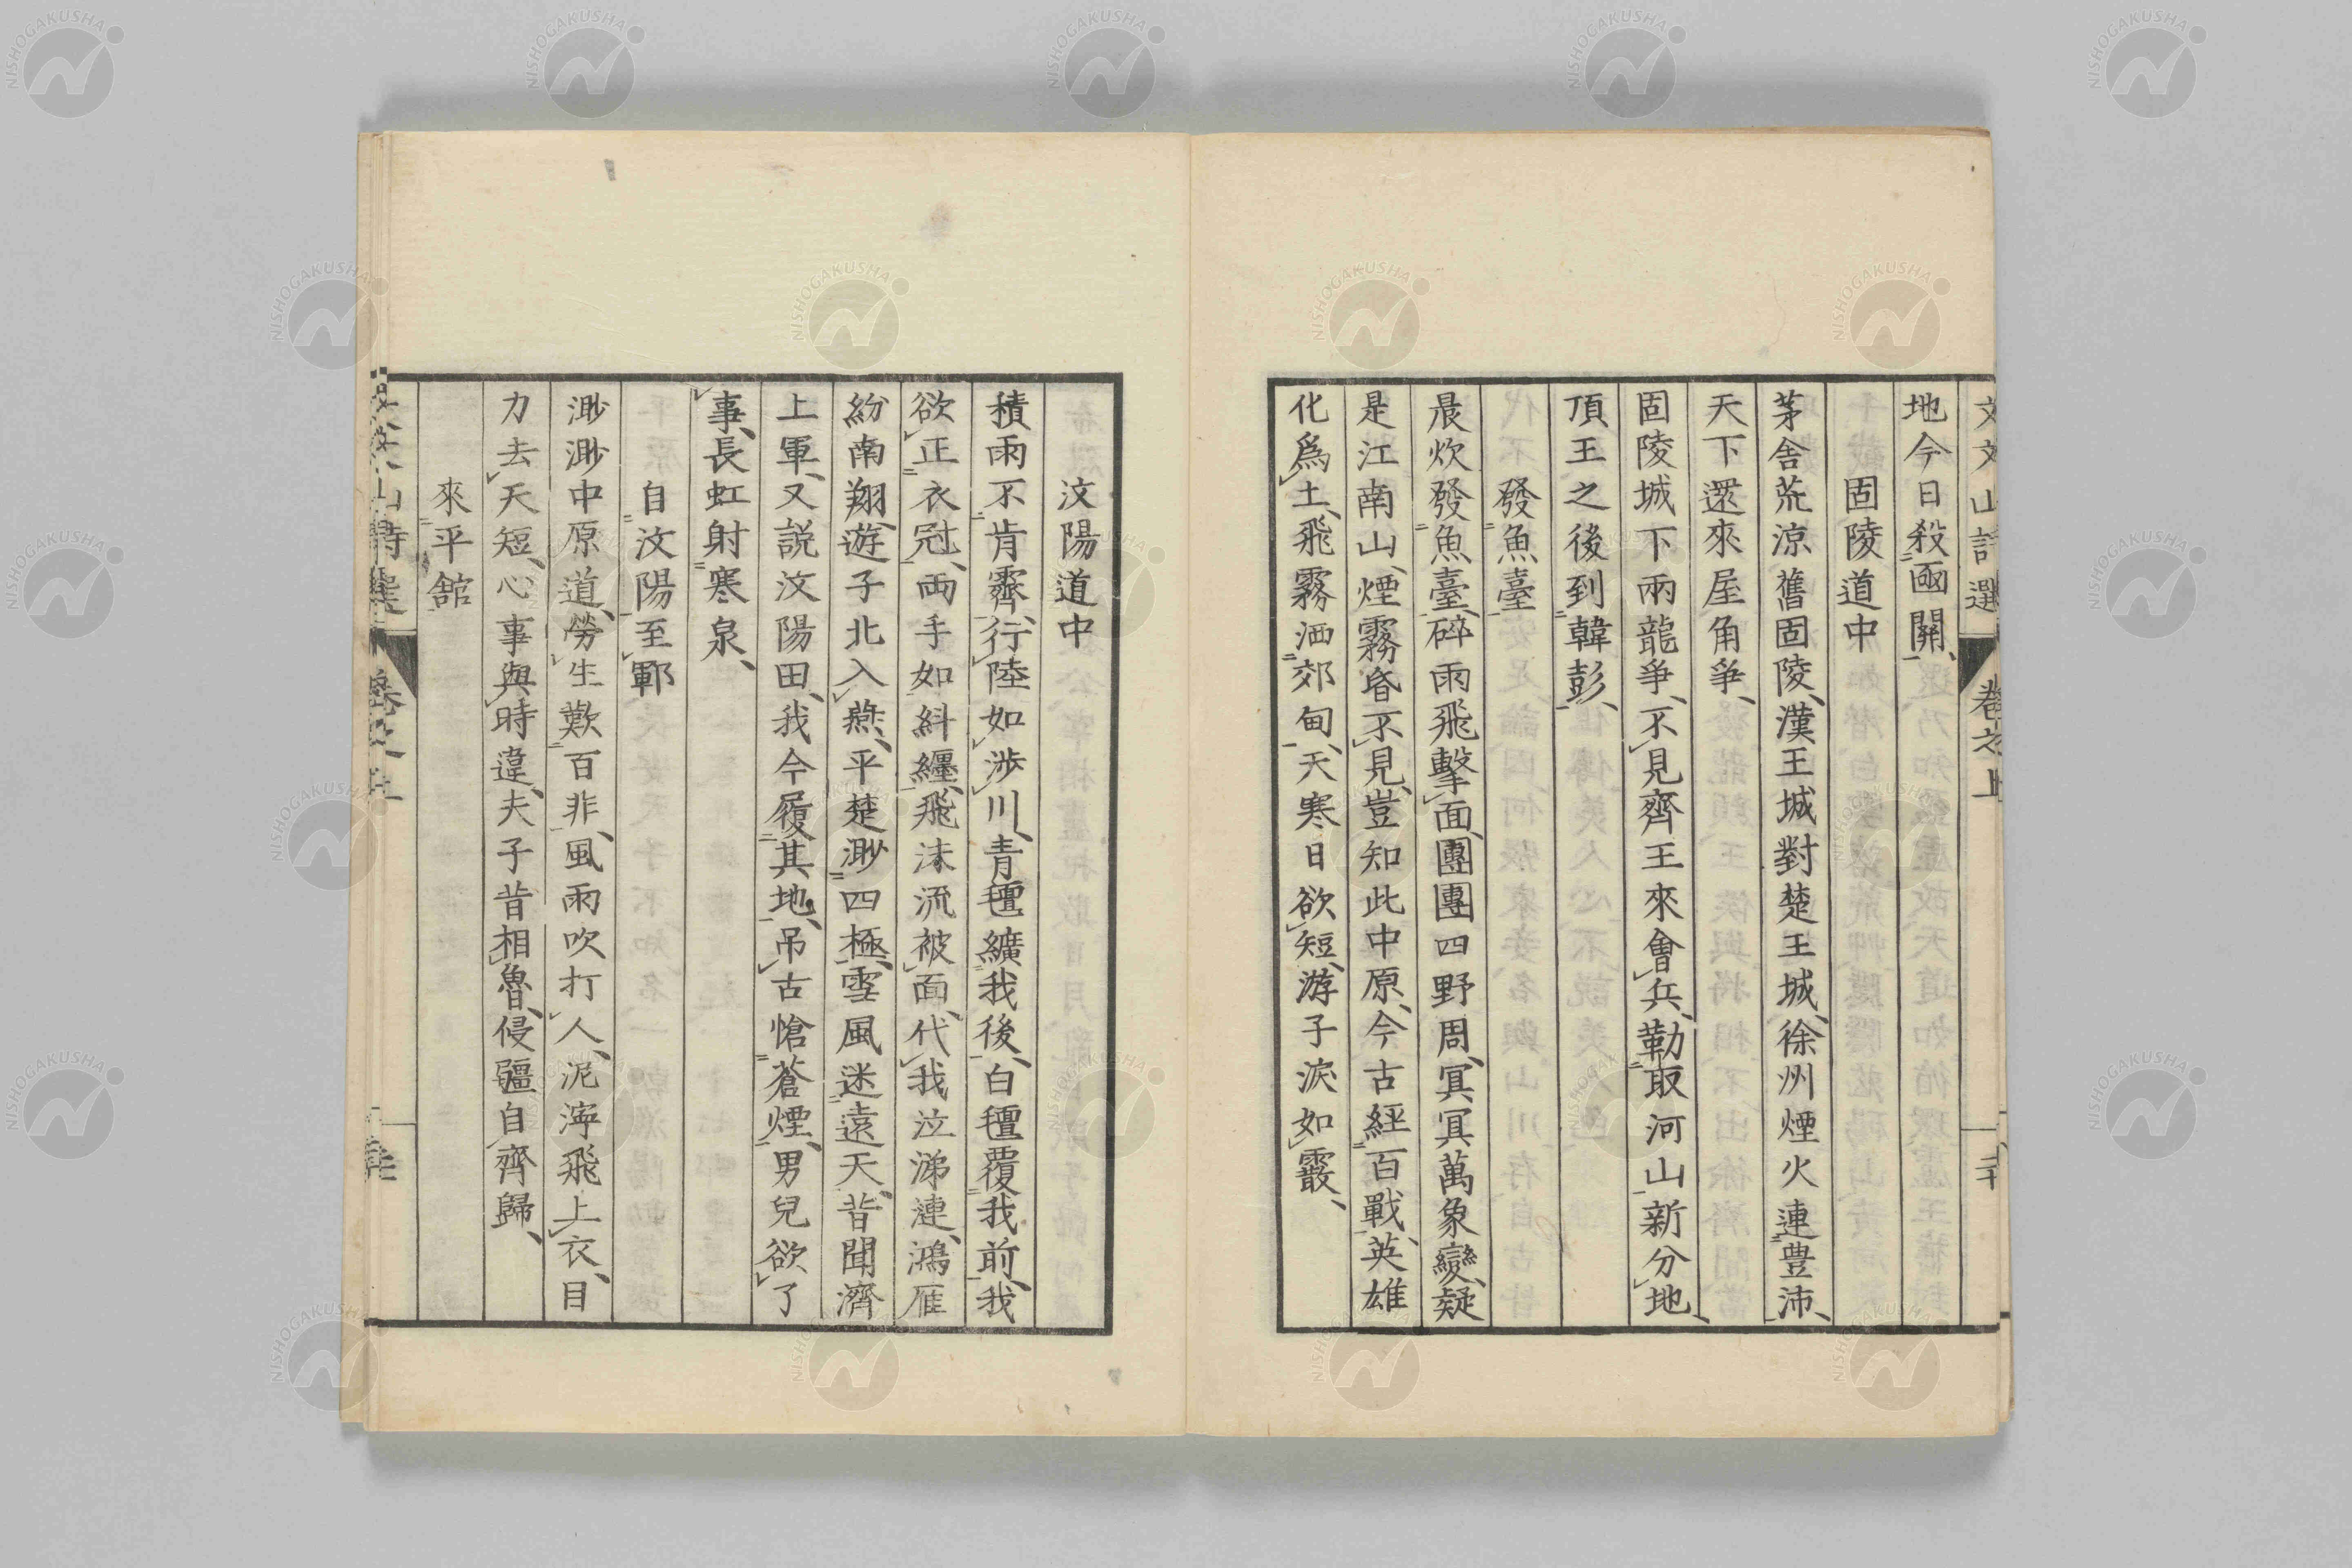 文文山詩選 卷之上
地今日殺函關
固陵道中
茅舍荒涼舊固陵漢王城對楚王城徐州煙火連豊沛
天下還來屋角爭
固陵城下兩龍爭不見齊王來會兵勒取河山新分地
頂王之後到韓彭
發魚臺
晨炊發魚臺碎雨飛擊面團團四野周冥冥萬象變疑
是江南山煙霧昏不見豈知此中原今古經百戰英雄
化爲土飛霧洒郊甸天寒日欲短游子淚如霰
汶陽道中
積雨不肯霽行陸如涉川青氊纊我後白氊覆我前我
欲正衣冠兩手如糾纏飛沫流被面代我泣涕漣鴻雁
紛南翔遊子北入燕平楚渺四極雪風迷遠天昔聞濟
上軍又説汶陽田我今履其地吊古愴蒼煙男兒欲了
事長虹射寒泉
自汶陽至鄆
渺渺中原道勞生歎百非風雨吹打人泥濘飛上衣目
力去天短心事與時違夫子昔相魯侵疆自齊歸
來平舘
NISHOGAKUSHA